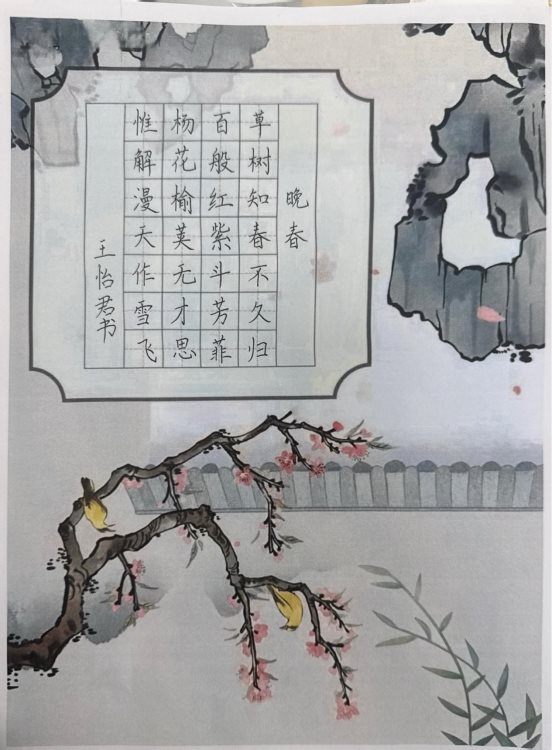 晚春
草树知春不久归
百般红紫斗芳菲
杨花榆荚无才思
惟解漫天作雪飞
王怡君书